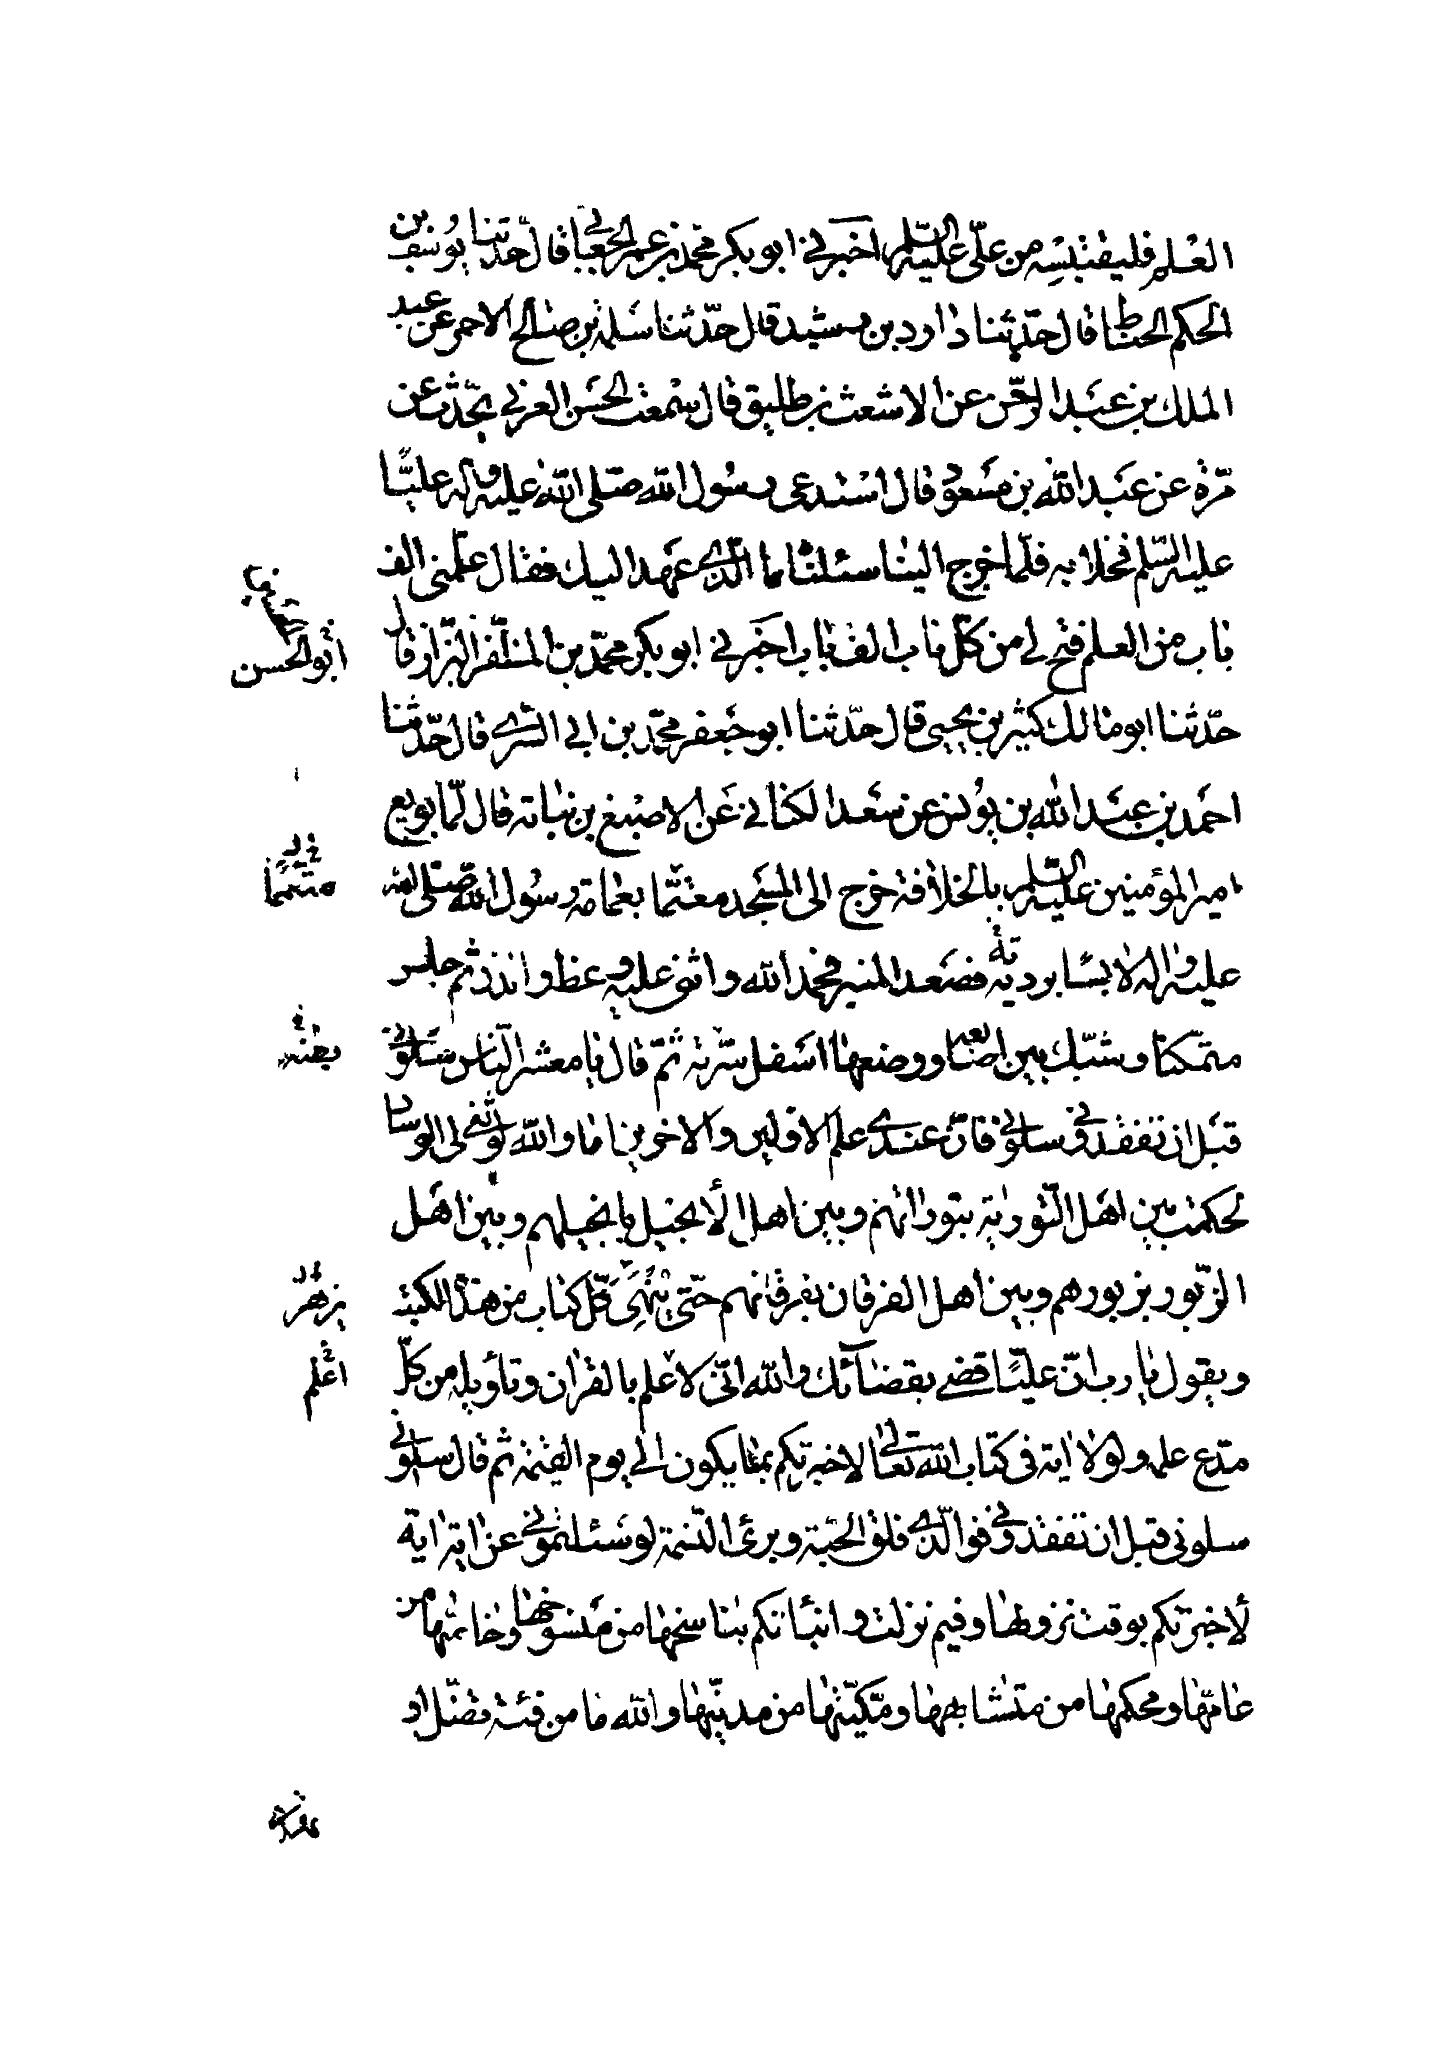 العلم فليقتبسه من علّى عليه السّلم اخبرني ابو بكر محمد بن عمر الجعابي قال حدّثنا يوسف بن
الحكم الحناط قال حدّثنا داود بن رشيد قال حدّثنا سلمة بن صالح الاحمر عن عبد
الملك بن عبد الرحمن عن الاشعث بن طليق قال سمعت الحسن العرني يحدّث عن
مرّة عن عبد الله بن مسعود قال استدعى رسول الله صلى الله عليه واله عليّا
عليه السّلم فخلا به فلمّا خرج الينا سئلناه ما الّذى عهد اليك فقال علّمنى الف
باب من العلم فتح لي من كلّ باب الف باب اخبرني ابو بكر محمّد بن المظفّر البزاز قال
ابو الحسن
حدّثنا ابو مالك كثير بن يحيى قال حدّثنا ابو جعفر محمّد بن ابي السّرى قال حدّثنا
احمد بن عبد الله بن يونس عن سعد الكناني عن الاصبغ بن نباته قال لمّا بويع
امير المؤمنين عليه السّلم بالخلافة خرج الى المسجد معتمّا بعمامة رسول الله صلى الله
متعمما
عليه واله لابسا بردته فصعد المنبر فحمد الله واثنى عليه و وعظ وانذر ثم جلس
متمكنا وشبّك بين اصابعه و وضعها اسفل سرّته ثمّ قال يا معشر النّاس سلوني
بطنه
قبل ان تفقدوني سلوني فانّ عندى علم الاولين والاخرين اما والله لو ثنى لى الوساد
لحكمت بين اهل التّورية بتوراتهم وبين اهل الأنجيل بانجيلهم وبين اهل
الزّبور بزبورهم وبين اهل الفرقان بفرقانهم حتّى ينهى كلّ كتاب من هذه الكتب
يزهر
ويقول يا رب انّ عليّا قضى بقضائك والله انّى لاعلم بالقران وتأويله من كلّ
اعلم
مدّع علمه ولولا اية فى كتاب الله تعالى لاخبرتكم بما يكون الى يوم القيمة ثم قال سلوني
سلوني قبل ان تفقدوني فوالّذى فلق الحبّة وبرئ النّسمة لو سئلتموني عن اية اية
لأخبرتكم بوقت نزولها وفيم نزلت وانباتكم بناسخها من منسوخها وخاصّها من
عامّها ومحكمها من متشابهها ومكّيّتها من مدنيّها والله ما من فئة تضلّ او